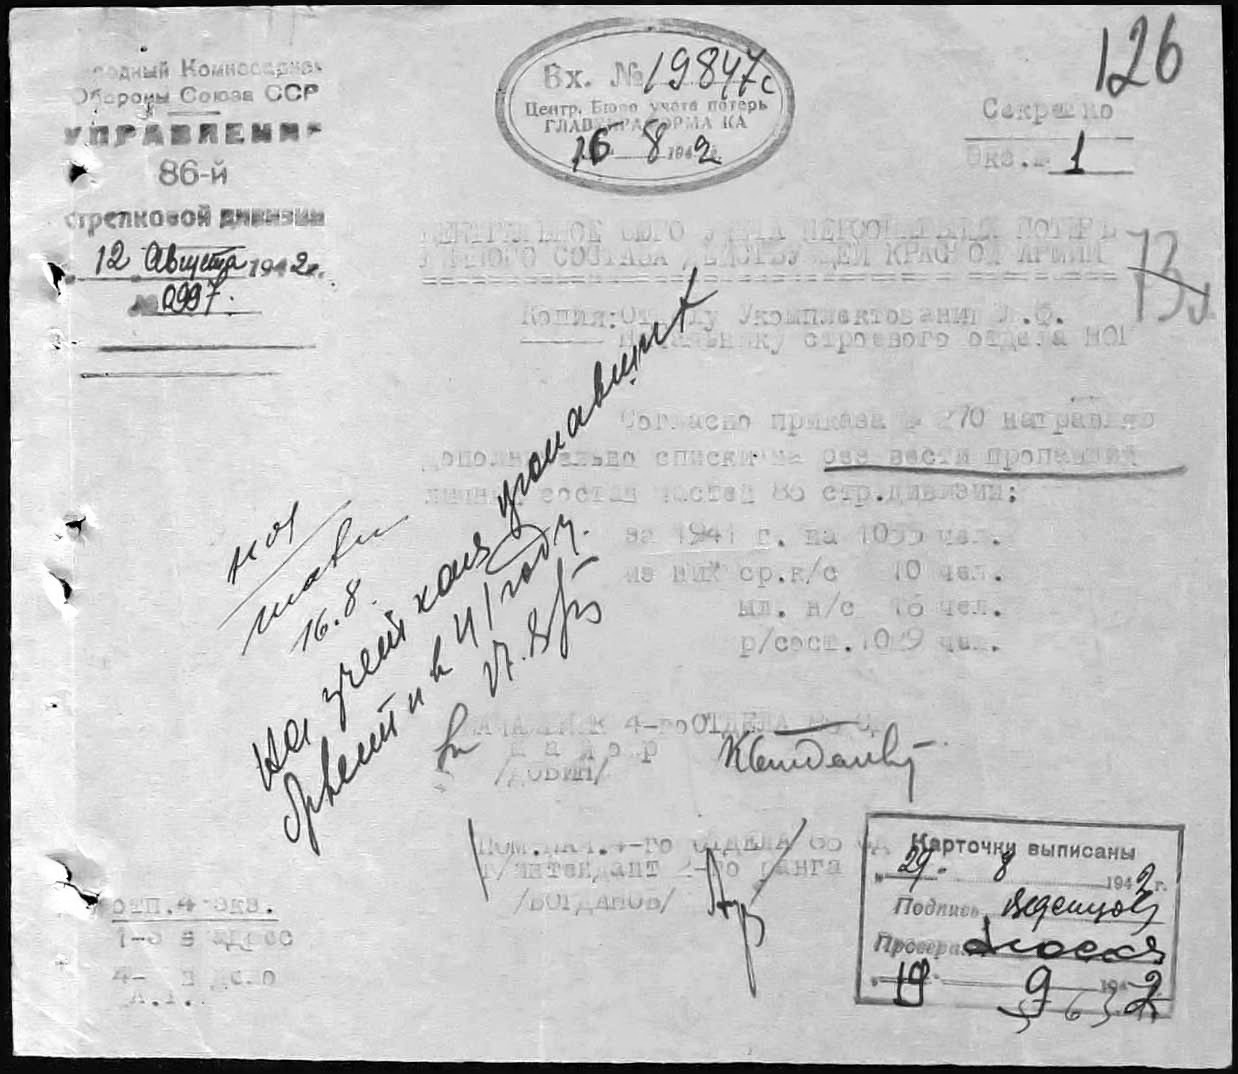 126
Вх. № 19847с
Центр. Бюро учета потерь
ГЛАВУПРАФОРМА КА
16 8 1942
Народный Комиссариат
Обороны Союза ССР
УПРАВЛЕНИЕ
86-й
стрелковой дивизии
12 Августа 1942г.
№ 0997.
Секретно
Экз.№ 1
ЦЕНТРАЛЬНОЕ БЮРО УЧЕТА ПЕРСОНАЛЬНЫХ ПОТЕРЬ
ЛИЧНОГО СОСТАВА ДЕЙСТВУЮЩЕЙ КРАСНОЙ АРМИИ
73
Копия: Отделу Укомплектования Л.Ф.
Начальнику строевого отдела НО1
Согласно приказа № 270 направляю
дополнительно списки на без вести пропавший
личный состав частей 86 стр.дивизии:
за 1941 г. на 1055 чел.
из них ср.к/с 10 чел.
мл. к/с 16 чел.
р/сост. 1029 чел.
но1
16.8.
На учет как
в 41 году.
17.8
НАЧАЛЬНИК 4-го ОТДЕЛА 86 СД
майор
/ДОБИН/
ПОМ.НАЧ.4-го ОТДЕЛА 86 СД
т/интендант 2-го ранга
/БОГДАНОВ/
отп.4 экз.
1-3 в адрес
4- в дело
Карточки выписаны
"29" 8 1942г.
Подпись
Проверил
"19" 9 1942